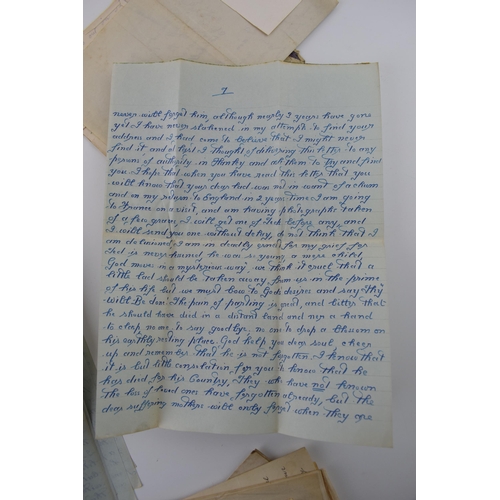 7
never will forget him, although nearly 3 years have gone
yet I have never slackened in my attempt to find your
address and I had come to believe that I might never
find it and at last I thought of addressing this letter to any
person of authority in Hanley and ask them to try and find
you. I hope that when you have read this letter that you
will know that your dear lad was not in want of a chum
and on my return to England in 2 years time I am going
to France on a visit, and am having photographs taken
of a few graves, I will get one of Teds before any, and
I will send you one without delay, do not think that I
am determined, I am in deadly and for my grief for
Ted is never named, he was so young, a mere child,
God moves in a mysterious way, we think it cruel that a
little lad should be taken away from us in the prime
of his life but we must bow to Gods desire and say Thy
will Be done. The pain of parting is great, and bitter that
he should have died in a distant land and not a hand
to clasp no one to say goodbye, no one to drop a blossom on
his earthly resting place. God help you dear soul, cheer
up and remember that he is not forgotten. I know that
it is but little consolation, for you to know that he
has died for his Country, They who have not known
the loss of loved ones have forgotten already, but the
dear suffering mothers will only forget when they are